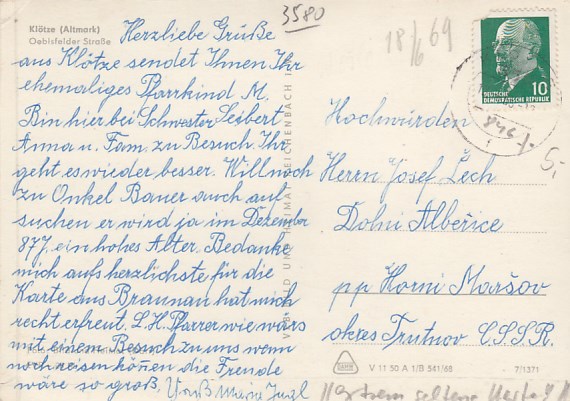 Klötze (Altmark)
Oebisfelder Straße
Herzliebe Grüße
aus Klötze sendet Ihnen Ihr
ehemaliges Pfarrkind M.
Bin hier bei Schwester Seibert
Anna u. Fam. zu Besuch. Ihr
geht es wieder besser. Will noch
zu Onkel Bauer auch auf
suchen er wird ja im Dezember
87 J. ein hohes Alter. Bedanke
mich auf herzlichste für die
Karte aus Braunau hat mich
recht erfreut. L. H. Pfarrer wie wärs
mit einem Besuch zu uns wenn
noch reisen können die Freude
wäre so groß.
3580
18/6 69
10
DEUTSCHE
DEMOKRATISCHE REPUBLIK
5,-
Hochwürden
Herrn Josef Lech
Dolni Albeřice
pp Horni Maršov
okres Trutnov Č.S.S.R.
V 11 50 A 1/B 541/68
7/1371